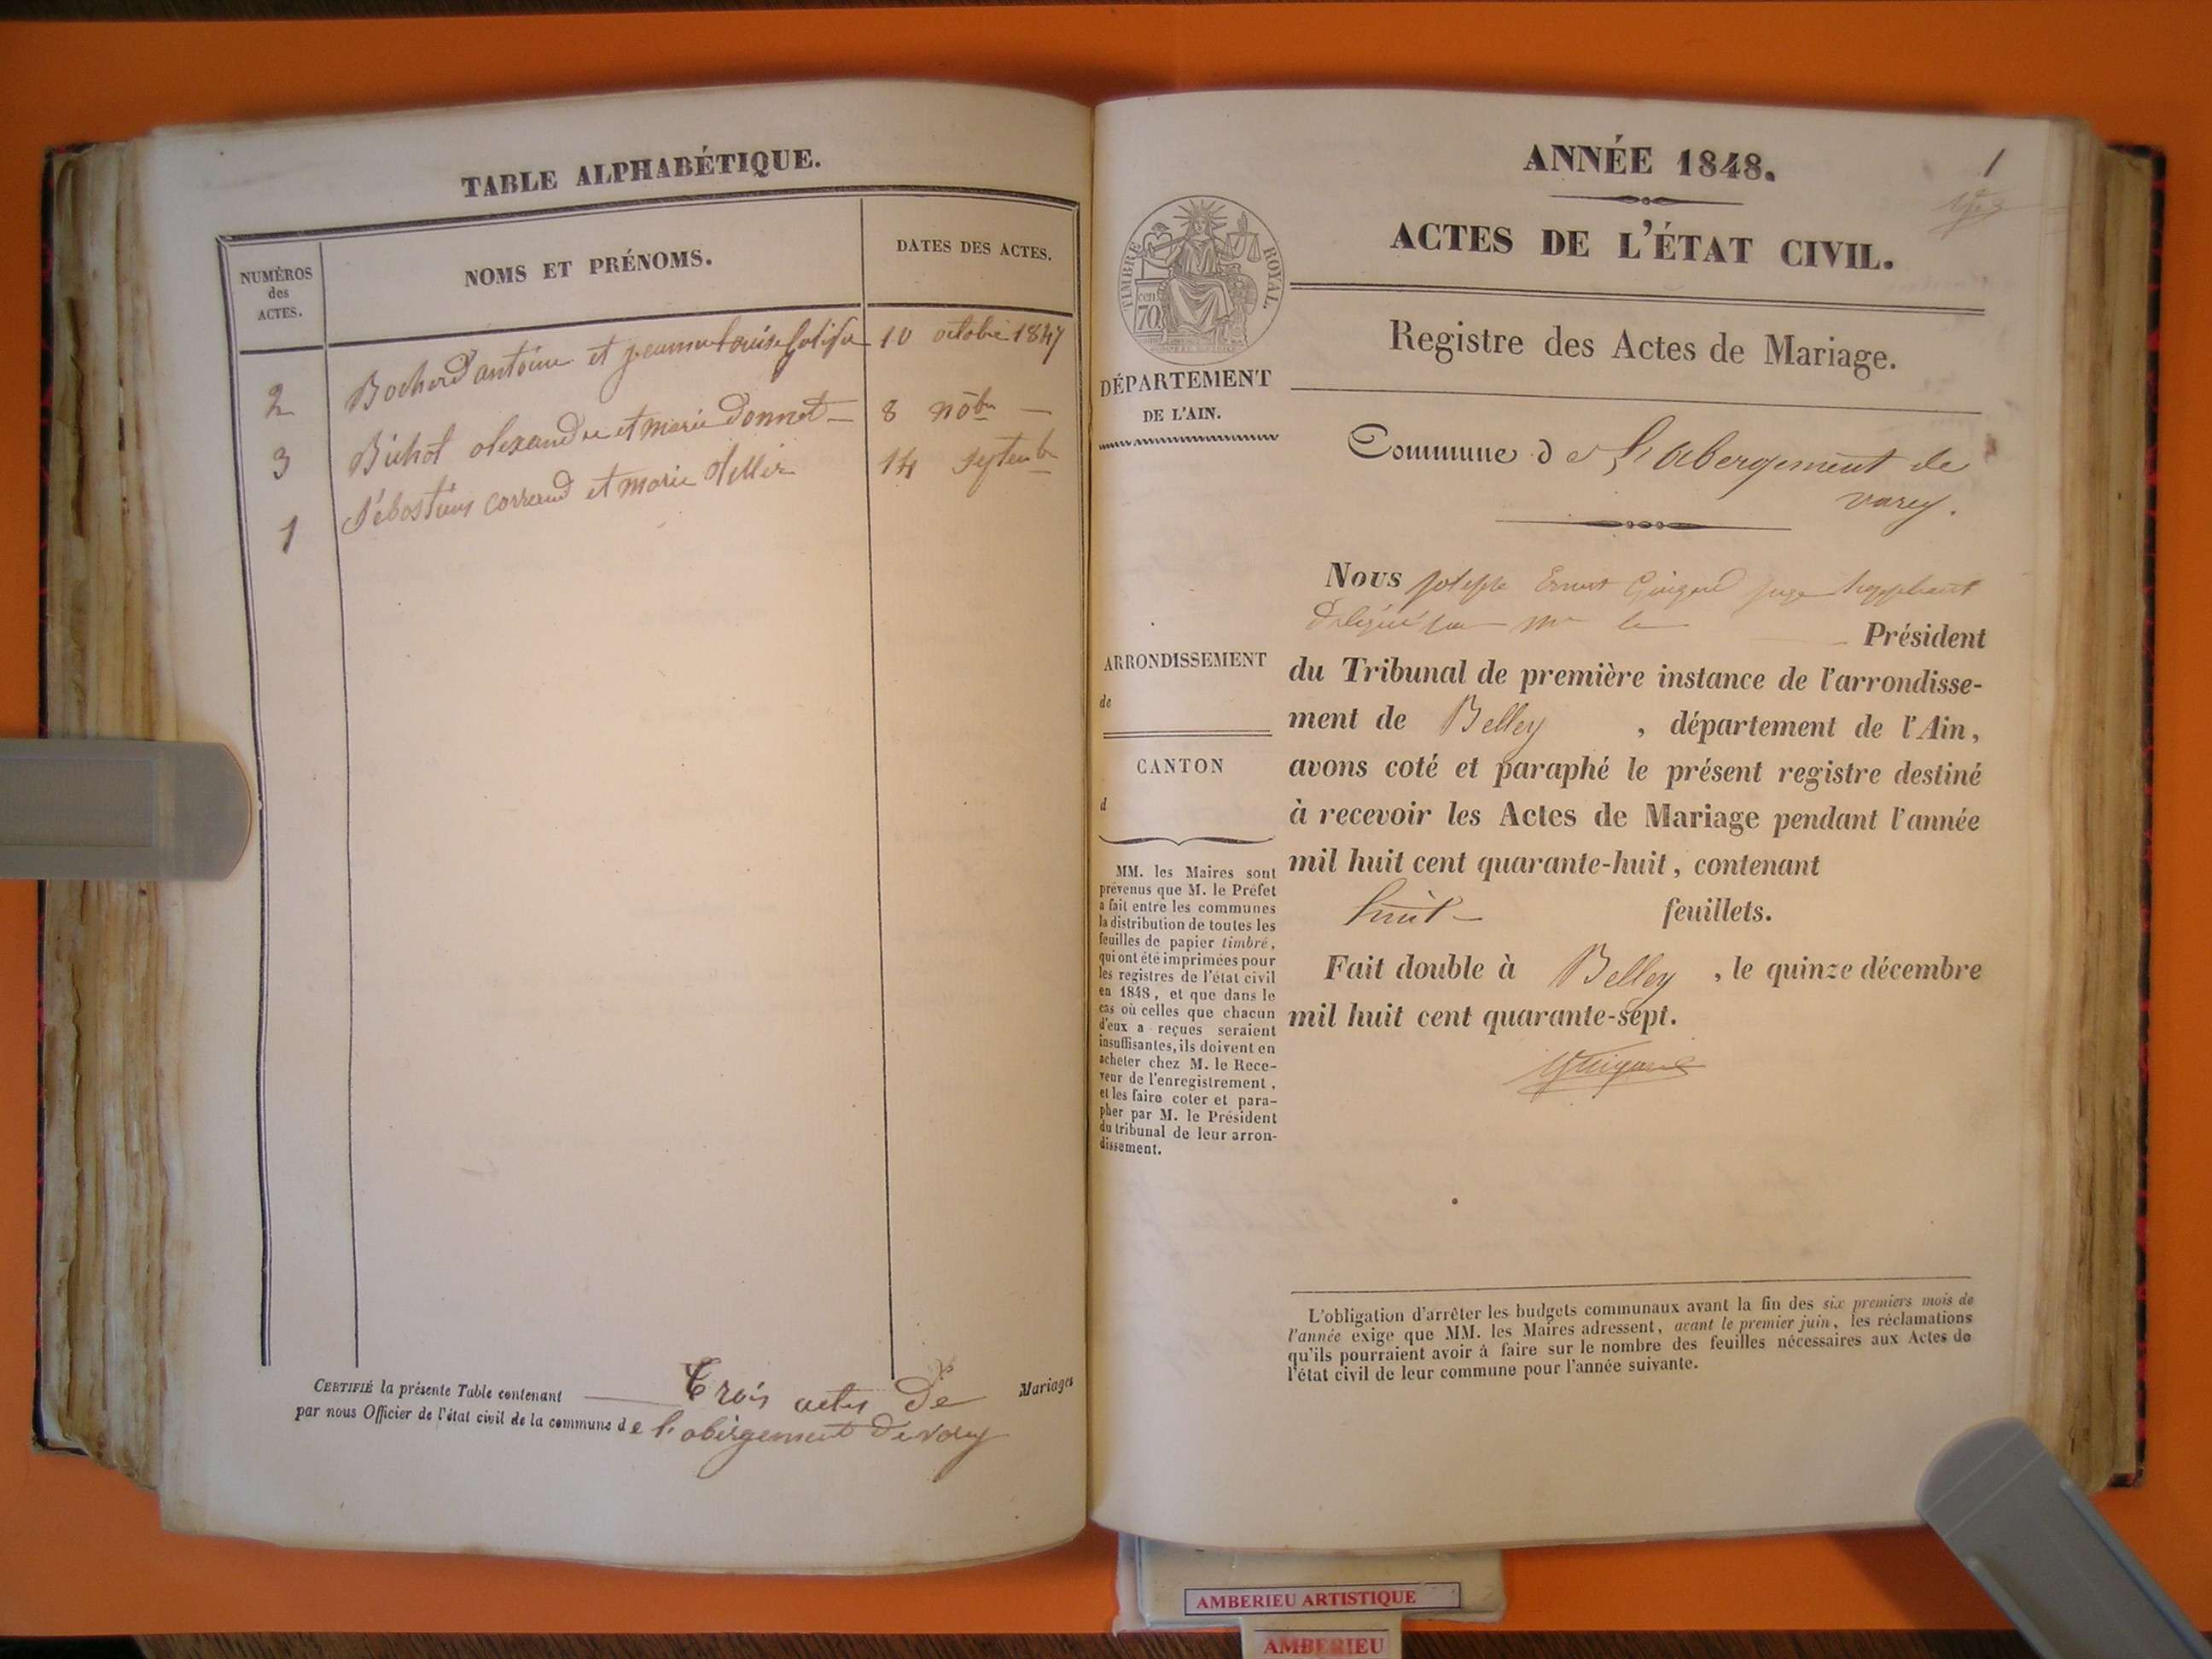 TABLE ALPHABÉTIQUE.
NUMÉROS
des
ACTES.
NOMS ET PRÉNOMS.
DATES DES ACTES.
2 Bochard antoine et jeanne Louise 10 octobre 1847
3 Bichot alexandre et marie Donnet 8 nobre —
1 Sébastien carraud et marie tellier 14 septembre
CERTIFIÉ la présente Table contenant Trois actes De Mariages
par nous Officier de l'état civil de la commune de l'abergement De varey
ANNÉE 1848.
1
TIMBRE ROYAL.
70 cen.
ACTES DE L'ÉTAT CIVIL.
Registre des Actes de Mariage.
DÉPARTEMENT
DE L'AIN.
Commune de L'abergement de
varey.
ARRONDISSEMENT
de
CANTON
d
MM. les Maires sont
prévenus que M. le Préfet
a fait entre les communes
la distribution de toutes les
feuilles de papier timbré,
qui ont été imprimées pour
les registres de l'état civil
en 1848, et que dans le
cas où celles que chacun
d'eux a reçues seraient
insuffisantes, ils doivent en
acheter chez M. le Rece-
veur de l'enregistrement,
et les faire coter et para-
pher par M. le Président
du tribunal de leur arron-
dissement.
Nous Joseph Ernest Guigard juge suppléant
délégué par Mr le Président
du Tribunal de première instance de l'arrondisse-
ment de Belley, département de l'Ain,
avons coté et paraphé le présent registre destiné
à recevoir les Actes de Mariage pendant l'année
mil huit cent quarante-huit, contenant
huit feuillets.
Fait double à Belley, le quinze décembre
mil huit cent quarante-sept.
L'obligation d'arrêter les budgets communaux avant la fin des six premiers mois de
l'année exige que MM. les Maires adressent, avant le premier juin, les réclamations
qu'ils pourraient avoir à faire sur le nombre des feuilles nécessaires aux Actes de
l'état civil de leur commune pour l'année suivante.
AMBERIEU ARTISTIQUE
AMBERIEU